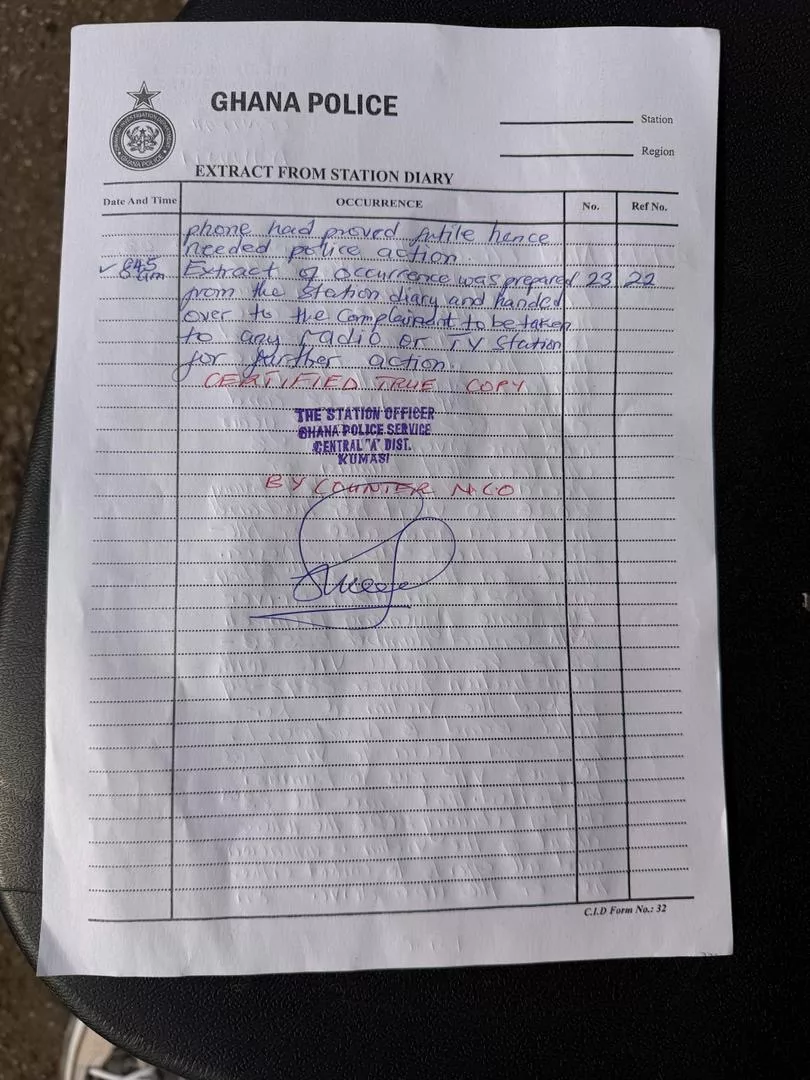 GHANA POLICE
Station
Region
GHANA POLICE
EXTRACT FROM STATION DIARY
Date And Time OCCURRENCE No. Ref No.
phone had proved futile hence
needed police action.
✓ 845 am Extract of occurrence was prepared 23 22
from the station diary and handed
over to the Complainant to be taken
to any radio or TV station
for further action.
CERTIFIED TRUE COPY
THE STATION OFFICER
GHANA POLICE SERVICE
CENTRAL "A" DIST.
KUMASI
BY COUNTER NCO
C.I.D Form No.: 32